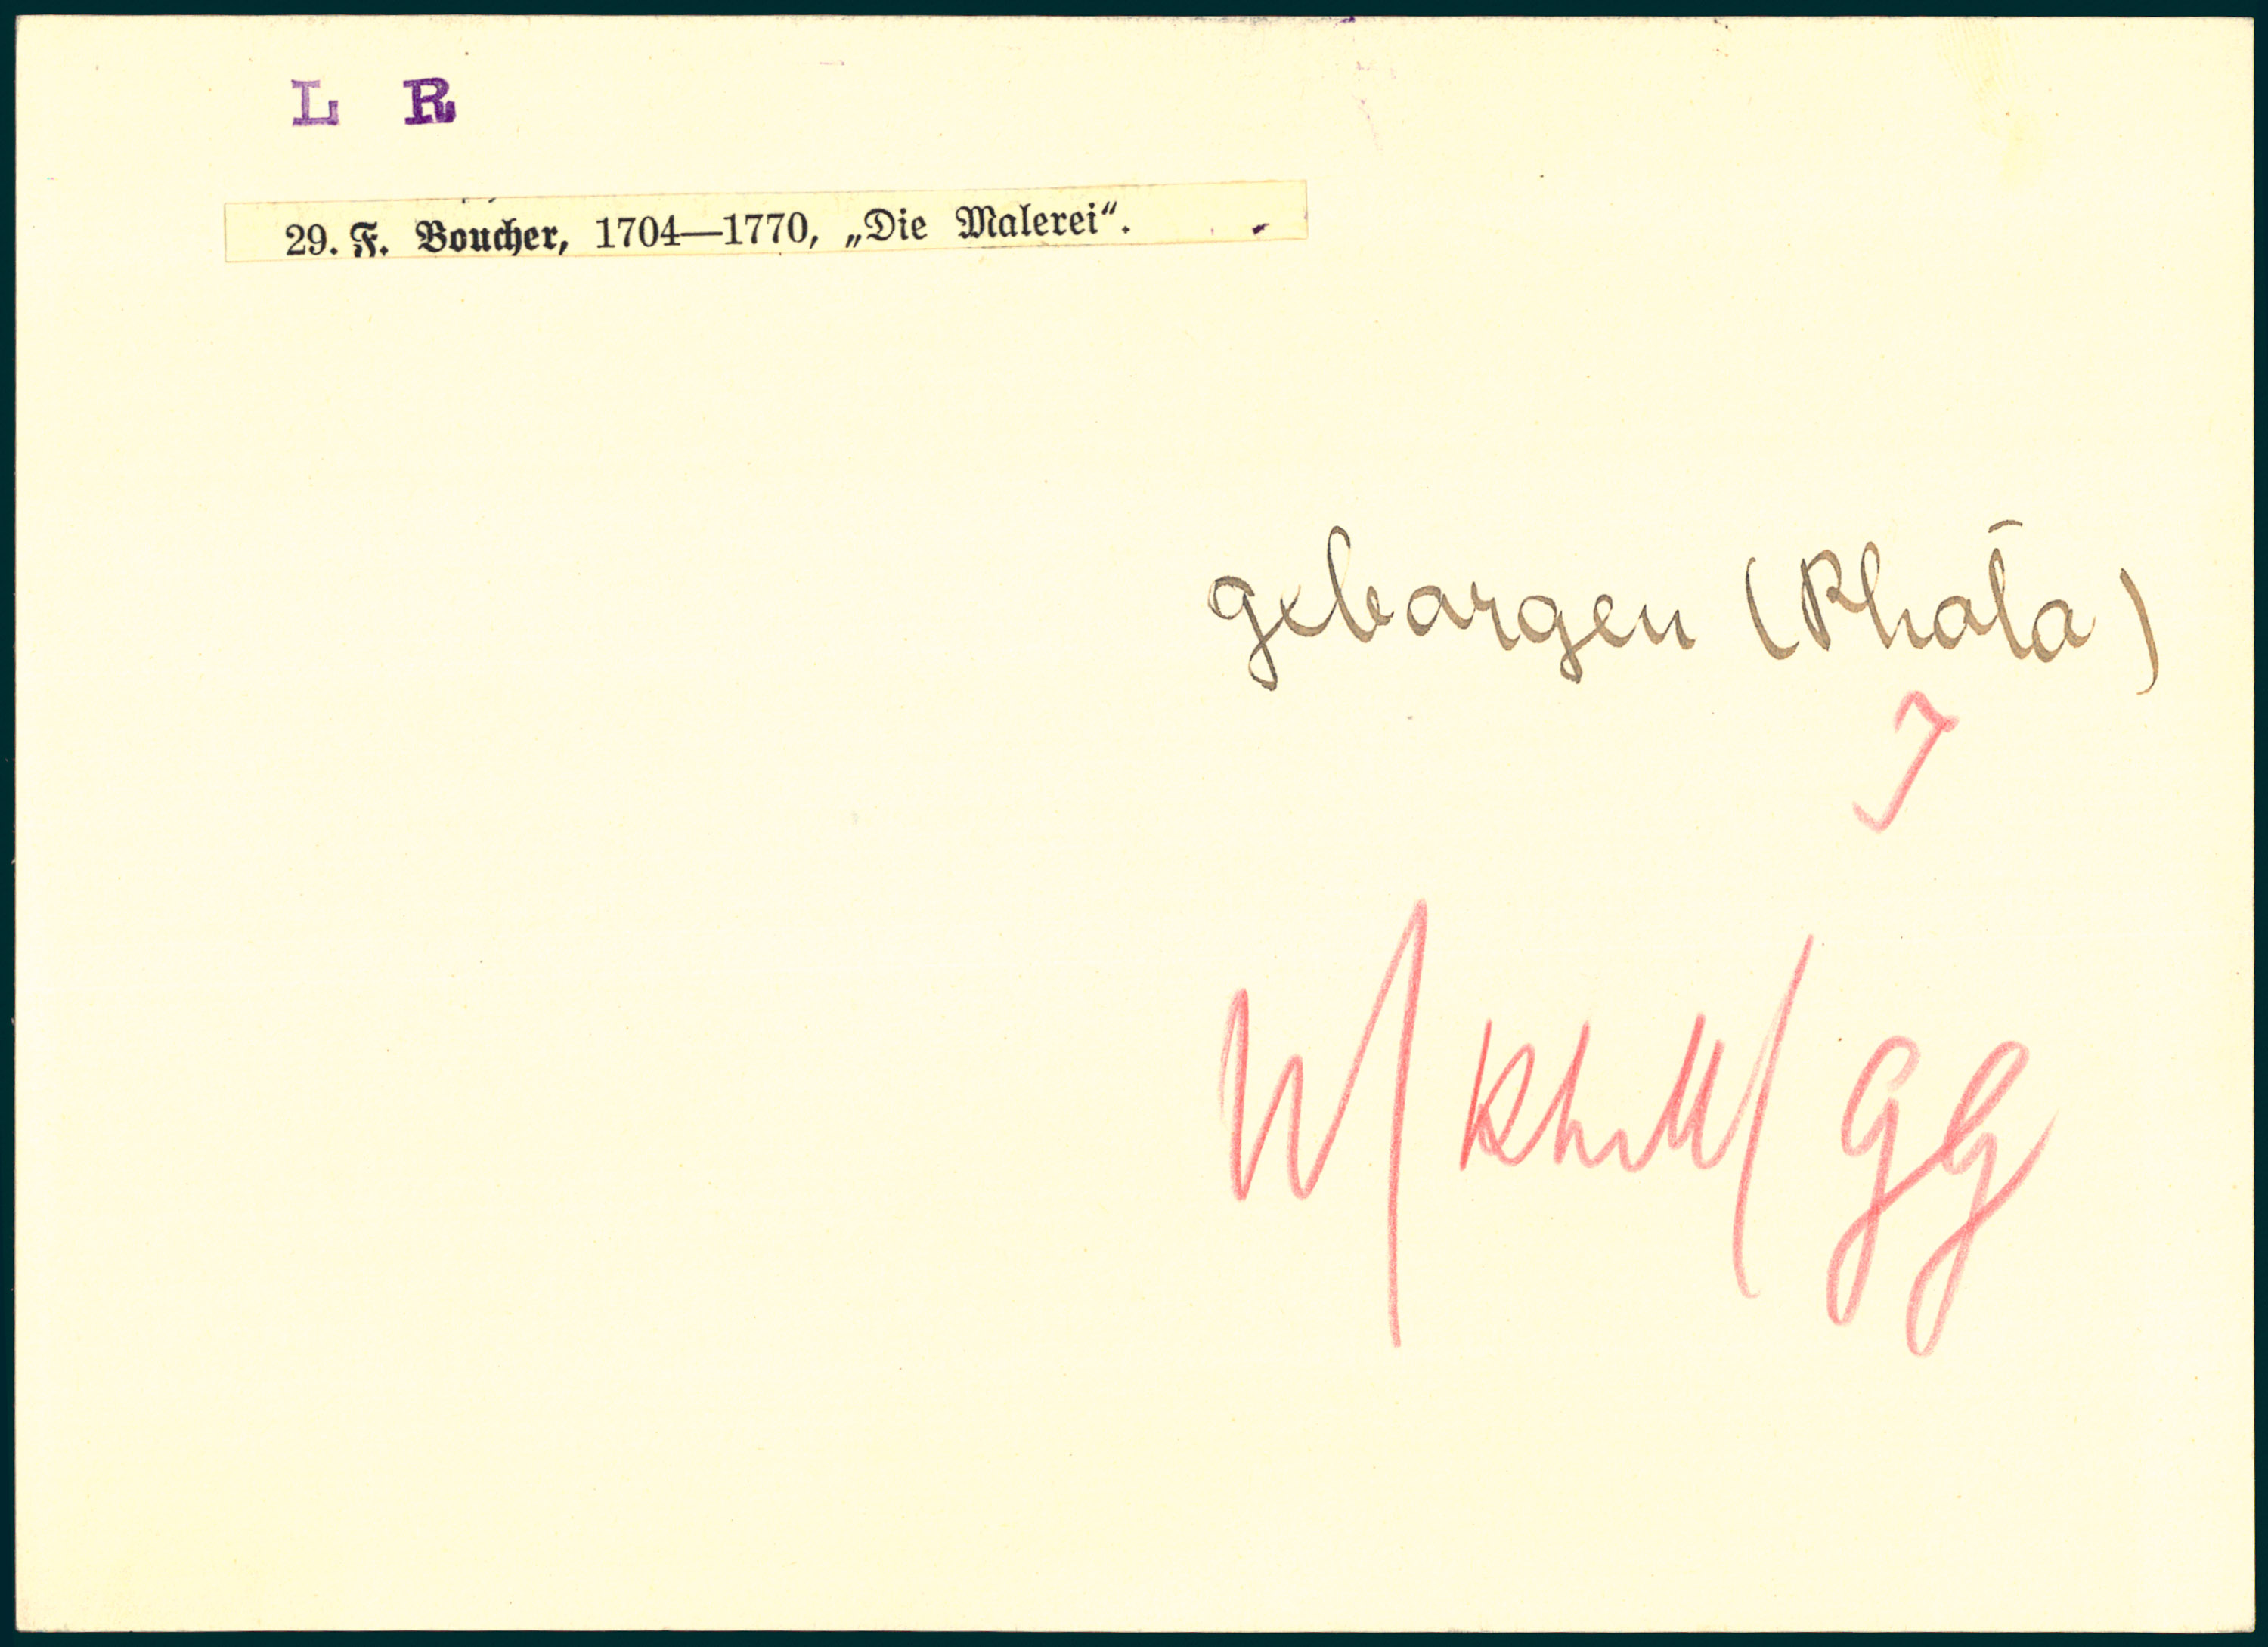 L R
29. F. Boucher, 1704—1770, „Die Malerei“.
geborgen (Rhala)
J
GG